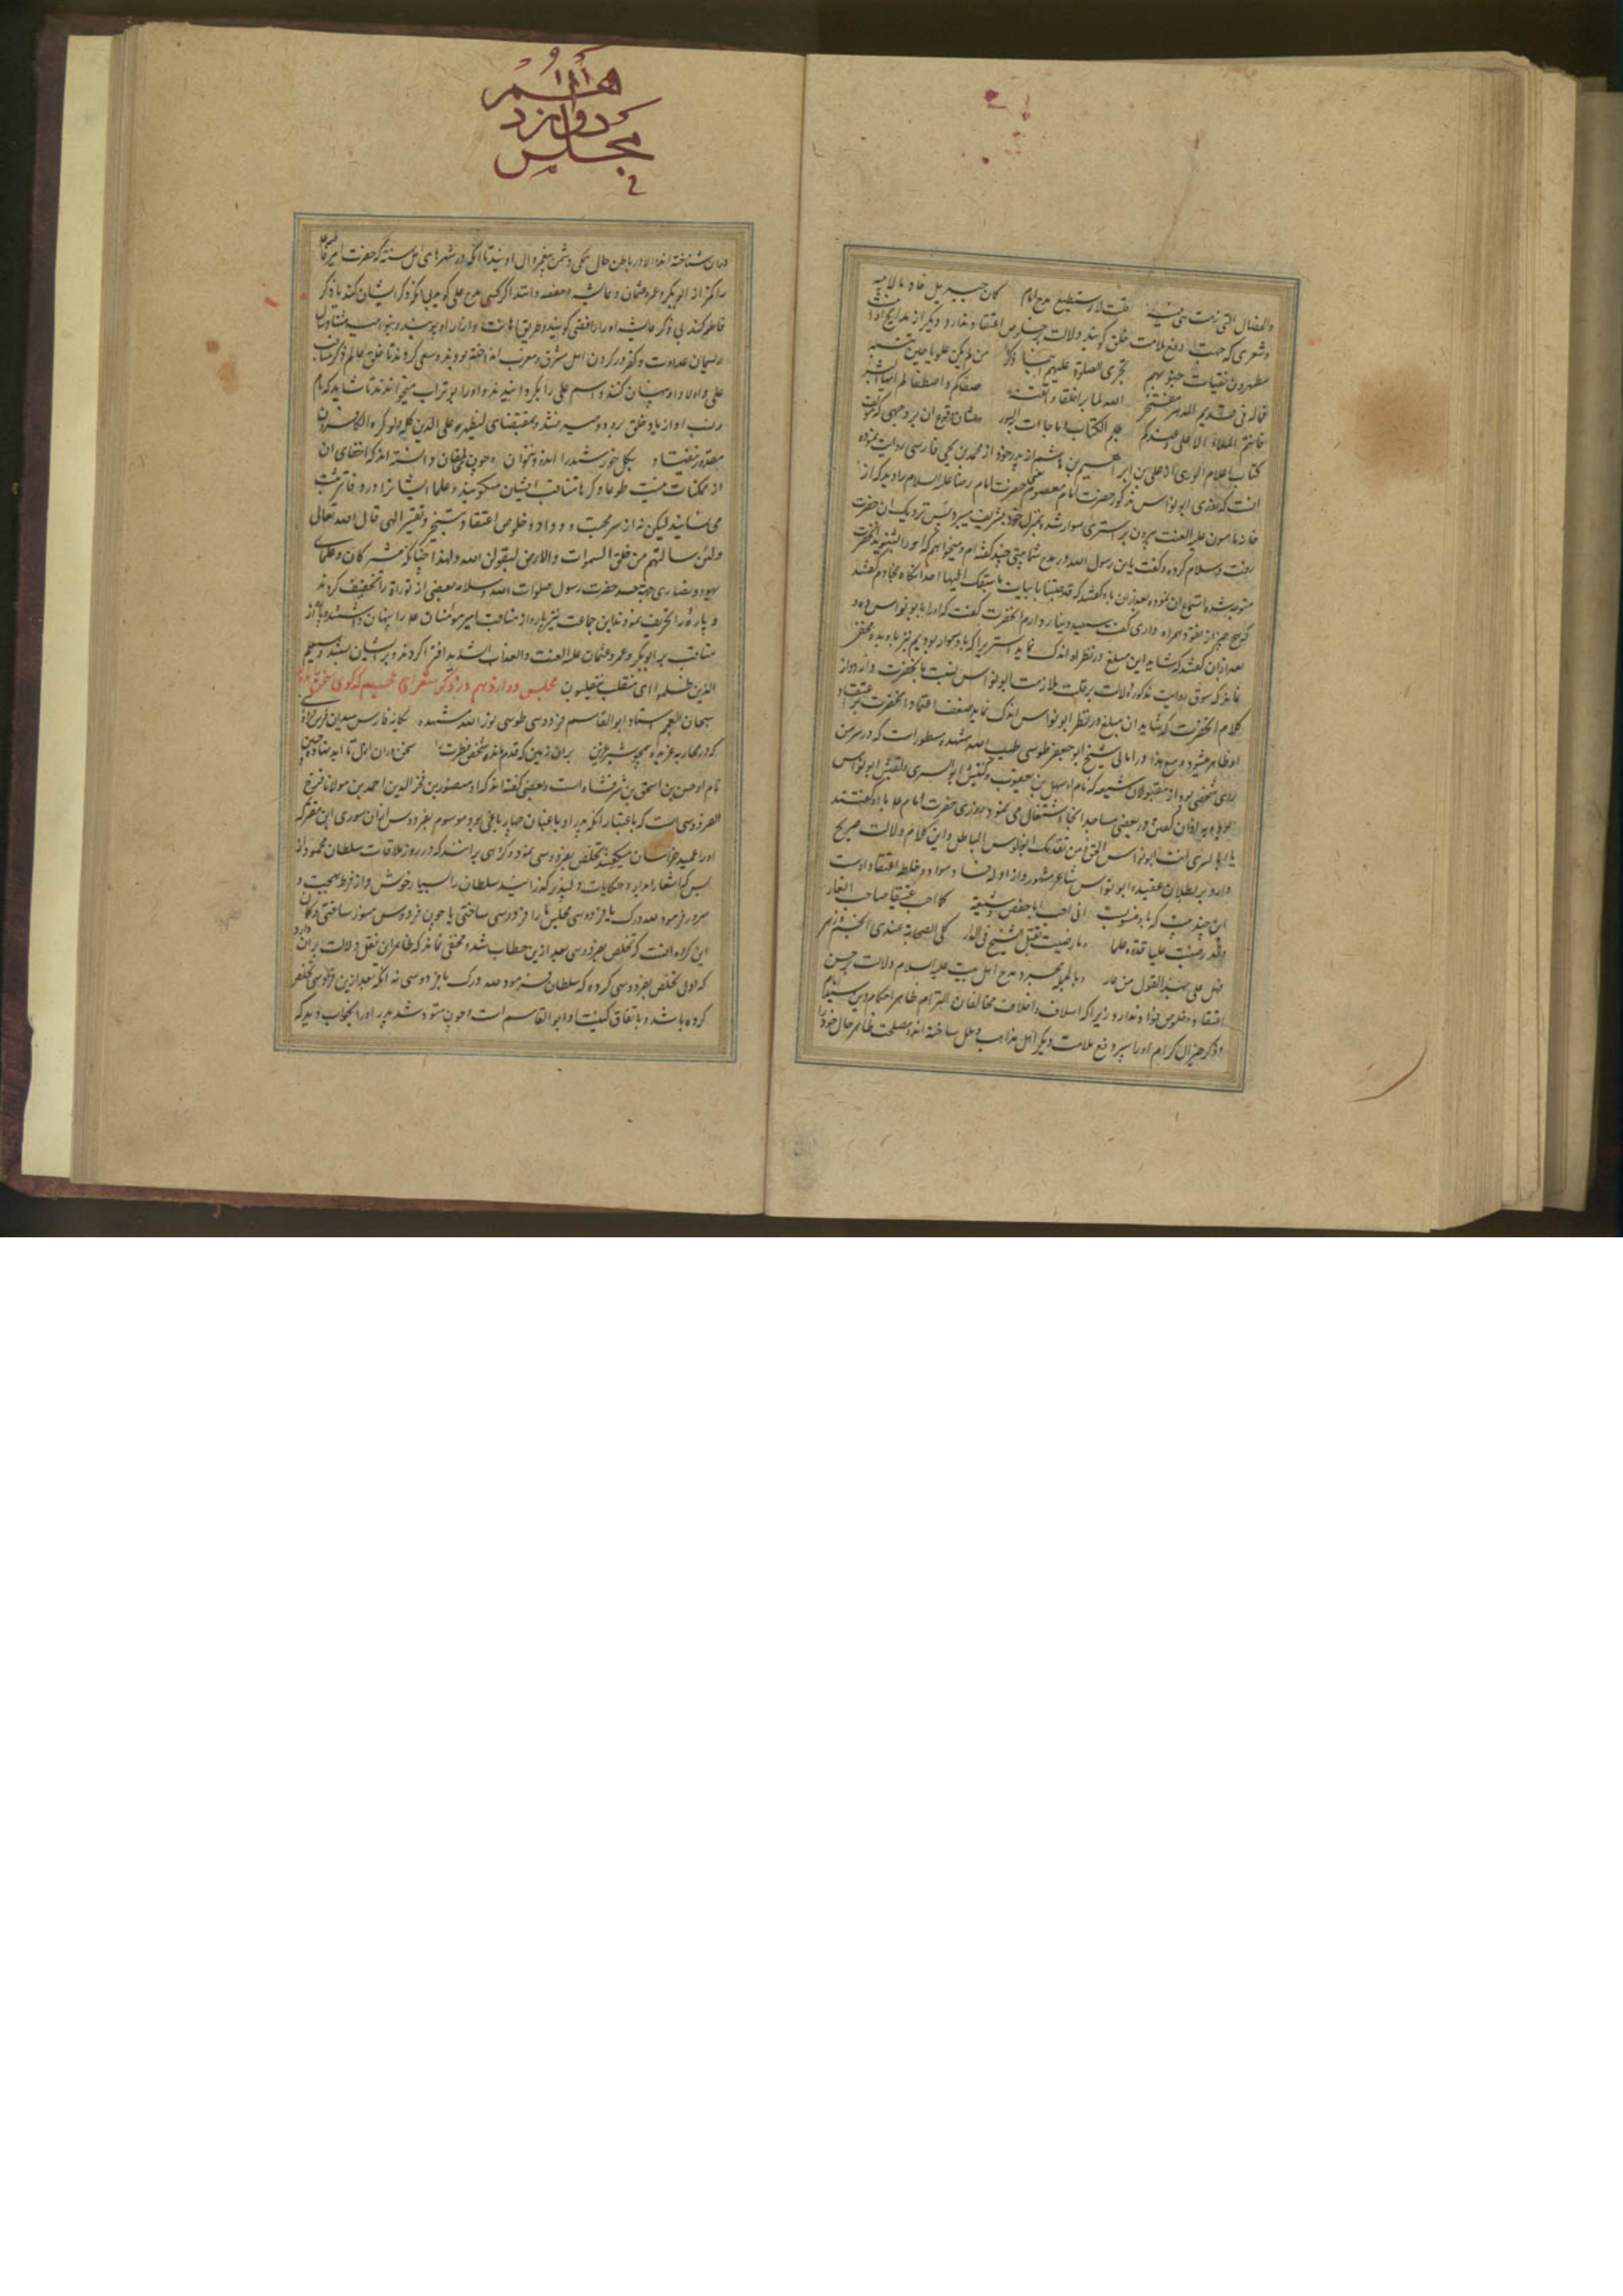 والخصال التی
قلت لا استطیع مدح امام کان جبریل خادما لابیه
وشعری که جهت دفع ملامت خلق گویند دلالت بر خلوص اعتقاد ندارد و دیگر از مدایح او
مطهرون نقیات جیوبهم تجری الصلوة علیهم اینما ذکروا من لم یکن علویا حین تنسبه
فما له فی قدیم الدهر مفتخر الله لما برا خلقا فاتقنه صفاکم واصطفاکم ایها البشر
فانتم الملاء الاعلی وعندکم علم الکتاب وما جاءت به السور
کتاب اعلام الوری از علی بن ابراهیم بن هاشم از پدر خود از محمد بن یحیی فارسی روایت نموده
انست که روزی ابونواس مذکور حضرت امام معصوم حضرت امام رضا علیه السلام را دید که از
خانه مامون علیه اللعنت بیرون بر استری سوار شده بمنزل خود تشریف میبرد پس نزدیک ان حضرت
رفت وسلام کرده و گفت یا بن رسول الله در مدح شما بیتی چند گفته ام و میخواهم که
متوجه شده استماع ان نموده بعد از ان باو گفتند که قد جئتنا بابیات ما سبقک الیها احد انگاه بخادم گفتند
که هیچ چیز از نقود همراه داری گفت سیصد دینار دارم انحضرت گفت که انرا بابونواس ده و
بعد از ان گفتند که شاید این مبلغ در نظر او اندک نماید استر را که باو سوار بودیم نیز باو بده
نماند که سوق روایت مذکوره دلالت بر قلت ملازمت ابونواس نسبت بانحضرت دارد و از
کلام انحضرت که شاید ان مبلغ در نظر ابونواس اندک نماید ضعف اعتماد انحضرت بر اعتقاد
او ظاهر میشود و مع هذا در امالی شیخ ابو جعفر طوسی طیب الله مشهده مسطورات که در سر من
رای شخصی بود از مقبولان شیعه که نام او سهل بن یعقوب و کنیتش ابو السری و لقبش ابونواس
بود به اذان گفتن در بعضی مساجد انجا اشتغال می نمود روزی حضرت امام علیه باو گفتند
یا ابا السری انت ابونواس الحق و من تقدمک ابونواس الباطل و این کلام دلالت صریح
دارد بر بطلان عقیده ابونواس شاعر مشهور و از ادله فساد مواد و خلط اعتقاد اوست
این چند بیت که باو منسوبست انی احب ابا حفص وشیعته کما احب عتیقا صاحب الغار
وقد رضیت علیا قدوة علما وما رضیت بقتل الشیخ فی الدار کل الصحابة عندی انجم زهر
فهل علی بهذا القول من عار وبالجمله مجرد مدح اهل بیت علیه السلام دلالت بر حسن
اعتقاد و خلوص فواد ندارد زیرا که اسلاف و اخلاف مخالفان التزام ظاهر احکام دین سید انام
و ذکر خیر ال کرام او را سپر دفع علامت دیگر اهل مذاهب و ملل ساخته اند و مصلحت ظاهر حال خود را
هم
دوازد
مجلس
در ان شناخته اند والا در باطن حال همگی دشمن پیغمبر و ال اویند تا انکه در شهرهای اهل سنت که حضرت امیر
را کمتر از ابوبکر و عمر و عثمان و عایشه و حفصه دانند اگر کسی مدح علی گوید بی انکه ذکر ایشان کند یا ذکر
فاطمه کند بی ذکر عایشه او را رافضی گویند و طریق اهانت و ازار او پویند و بنو امیه
ریسمان عداوت و کفر در گردن اهل مشرق و مغرب انداخته بودند و سعی کردند تا خلق عالم ذکر مناقب
علی و اولاد او پنهان کنند و اسم علی را بگردانیدند و او را بو تراب میخواندند تا شاید که نام
و نسب او از یاد خلق برود و میسر نشد و بمقتضای لیظهره علی الدین کله ولو کره الکافرون
بگل خورشید را اندودن نتوان و چون مخالفان دانسته اند که اخفای ان
از ممکنات نیست طوعا و کرها مناقب ایشان میگویند و علماء ایشانرا در دفاتر ثبت
می نمایند لیکن نه از سر محبت و وداد و خلوص اعتقاد بتسخیر و تقدیر الهی قال الله تعالی
ولئن سالتهم من خلق السموات والارض لیقولن الله و لهذا چنانکه مشرکان و علمای
یهود و نصاری جهت حسد حضرت رسول صلوات الله وسلامه بعضی از توراة را تخفیف کردند
و پاره را تحریف نمودند این جماعت نیز پاره از مناقب امیر مومنان علی را پنهان داشتند و پاره از
مناقب بر ابوبکر و عمر و عثمان علیه اللعنت والعذاب الشدید افترا کردند و بر ایشان بستند وسیعلم
الذین ظلموا ای منقلب ینقلبون مجلس دوازدهم در ذکر شعرای عجم که گوی سخن
سبحان العجم استاد ابو القاسم فردوسی طوسی نور الله مشهده یگانه فارس میدان فرس
که در محاربه عربده همچو شیر عرین بران زمین که قدم ماند شخص فطرت او سخن وران ازل تا ابد نهاده جبین
نام او حسن بن اسحق بن شرفشاه است و بعضی گفته اند که او منصور بن فخر الدین احمد بن مولانا فرخ
الفردوسی است که باعتبار انکه پدر او باغبان چهار باغی بود موسوم بفردوس از ان سوری ابن معتز که
او را عمید خراسان میگفتند تخلص بفردوسی نمود و گروهی برانند که در روز ملاقات سلطان محمود از
بس که اشعار ابدار و حکایات دلپذیر گذرانید سلطان را بسیار خوش و از فرط بهجت و
سرور فرمود لله درک یا فردوسی مجلس ما را فردوسی ساختی یا چون فردوس منور ساختی و گمان
این گروه انست که تخلص بفردوسی بعد ازین خطاب شد و مخفی نماند که ظاهر ان نقل دلالت بران دارد
که اول تخلص بفردوسی کرده که سلطان فرمود لله درک یا فردوسی نه انکه بعد ازین فردوسی تخلص
کرده باشد و باتفاق کنیت او ابو القاسم است و چون متولد شد پدر او را بخواب دید که